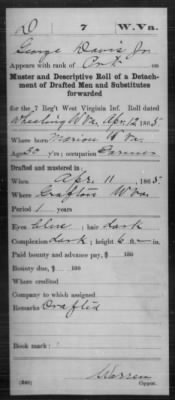 D 7 W. Va.
George Davis Jr
Appears with rank of Pvt on
Muster and Descriptive Roll of a Detach-
ment of Drafted Men and Substitutes
forwarded
for the 7 Reg't West Virginia Inf. Roll dated
Wheeling W Va, Apr. 12, 1865
Where born Marion W Va.
Age y'rs; occupation Farmer
Drafted and mustered in:
When Apr. 11, 1865
Where Grafton W Va.
Period 1 years
Eyes blue; hair dark
Complexion dark; height 6 ft. in.
Paid bounty and advance pay, $ 100
Bounty due, $ 100
Where credited
Company to which assigned
Remarks Drafted
Book mark:
Warren
Copyist.